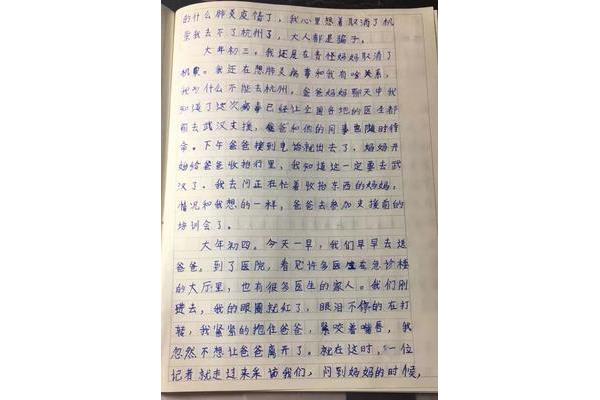 的什么肺炎疫情了，我心里想着取消了机
票我去不了杭州了，大人都是骗子。
大年初三。我还是在责怪妈妈取消了
机票。我还在想肺炎病毒和我有啥关系，
我为什么不能去杭州。爸爸妈妈聊天中我
知道了这次病毒已经让全国各地的医生都
前去武汉支援，爸爸和他的同事也随时待
命。下午爸爸接到电话就出去了，妈妈开
始给爸爸收拾行里，我知道这一定要去武
汉了。我去问正在忙着收拾东西的妈妈，
情况和我想的一样，爸爸去参加支援前的
培训会了。
大年初四。今天一早，我们早早去送
爸爸。到了医院，看见许多医生在急诊楼
的大厅里，也有很多医生的家人。我们刚
进去，我的眼圈就红了，眼泪不停的在打
转，我紧紧的抱住爸爸，紧咬着嘴唇，我
忽然不想让爸爸离开了。就在这时，一位
记者就走过来采访我们，问到妈妈的时候，